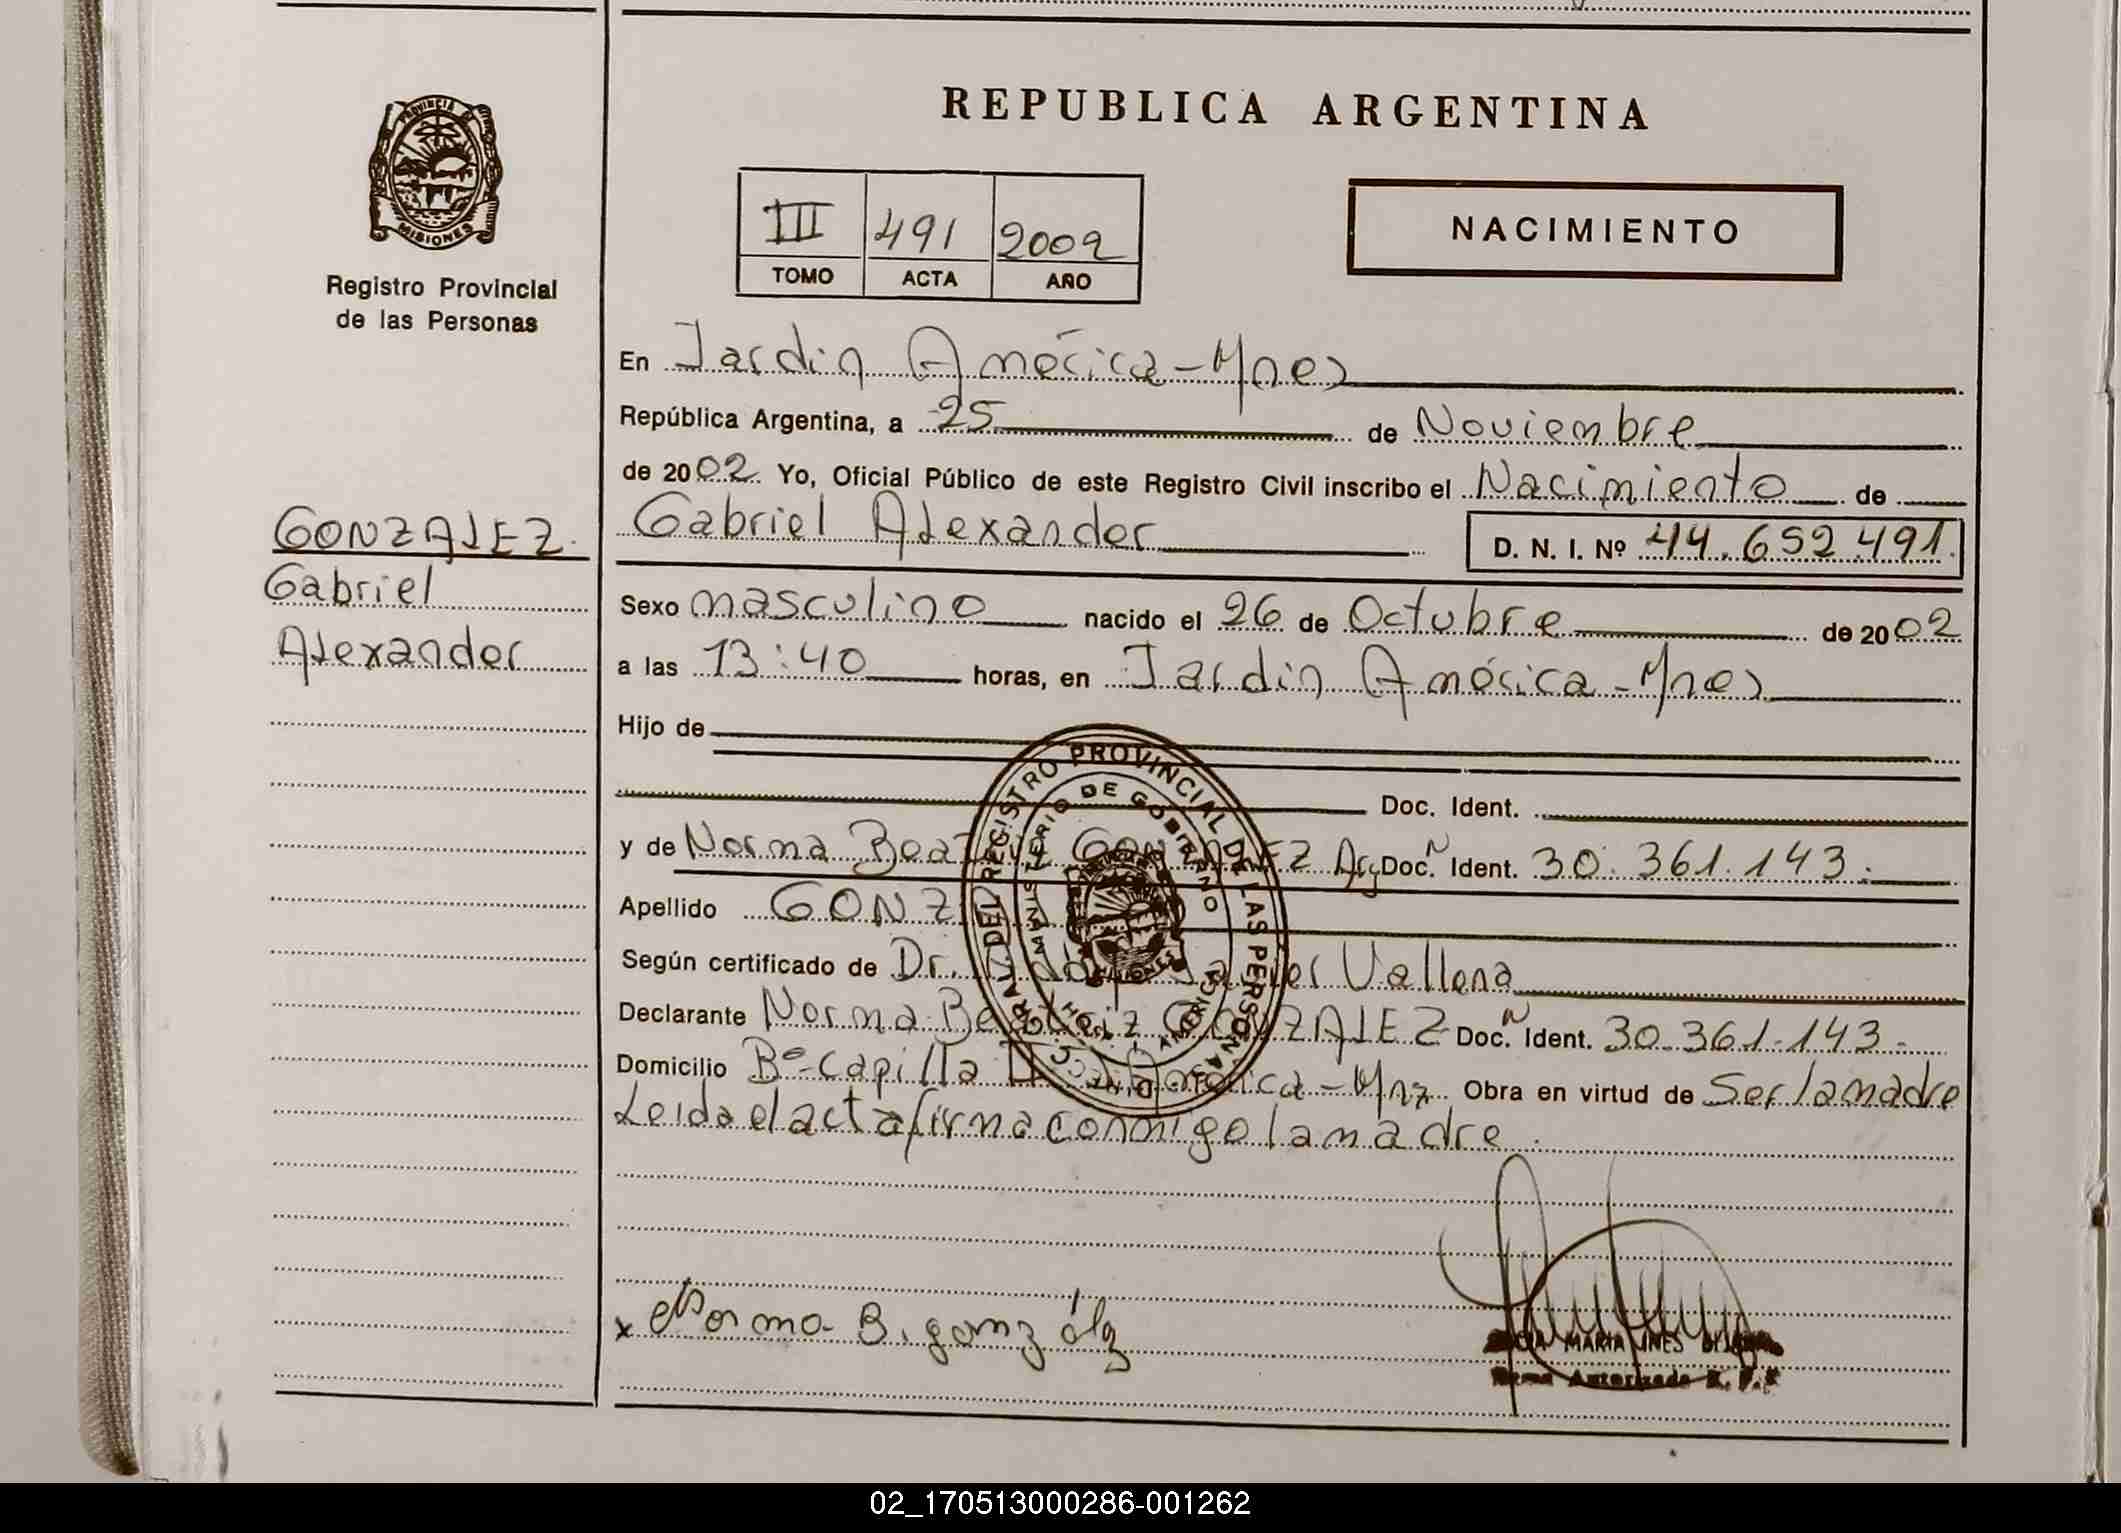 REPUBLICA ARGENTINA
PROVINCIA DE
MISIONES
Registro Provincial
de las Personas
III 491 2002
TOMO ACTA AÑO
NACIMIENTO
GONZALEZ
Gabriel
Alexander
En Jardin América - Mnes
República Argentina, a 25 de Noviembre
de 2002. Yo, Oficial Público de este Registro Civil inscribo el Nacimiento de
Gabriel Alexander D. N. I. Nº 44.652.491.
Sexo masculino nacido el 26 de Octubre de 2002
a las 13:40 horas, en Jardin América - Mnes
Hijo de
Doc. Ident.
y de Norma Beatriz GONZALEZ Arg Doc. N Ident. 30.361.143.
Apellido GONZ
Según certificado de Dr. Vallena
Declarante Norma Beatriz GONZALEZ Doc. N Ident. 30.361.143.
Domicilio Bº Capilla J. América - Mnz Obra en virtud de Ser la madre
Leida el acta firma conmigo la madre.
REGISTRO PROVINCIAL DE LAS PERSONAS
MINISTERIO DE GOBIERNO
x Norma B. gonzález
MARIA INES
Firma Autorizada R. P. P
02_170513000286-001262